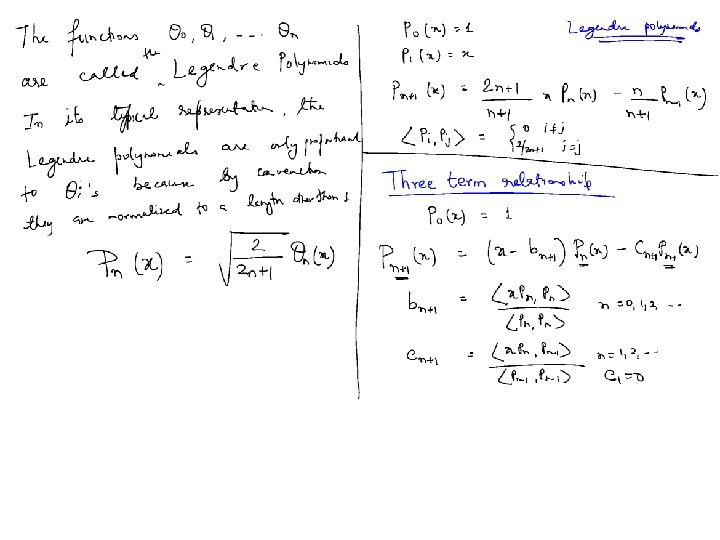 The functions θ₀, θ₁, .... θn
are called the Legendre Polynomials
In its typical representation, the
Legendre polynomials are only proportional
to θi's because by convention
they are normalized to a length other than 1
Pn(x) = √(2/(2n+1)) θn(x)
Legendre polynomials
P₀(x) = 1
P₁(x) = x
Pn+1(x) = (2n+1)/(n+1) x Pn(x) - n/(n+1) Pn-1(x)
⟨Pi, Pj⟩ = { 0 i≠j
2/2n+1 i=j
Three term relationship
P₀(x) = 1
Pn+1(x) = (x - bn+1) Pn(x) - Cn+1 Pn-1(x)
bn+1 = ⟨xPn, Pn⟩/⟨Pn, Pn⟩ n=0,1,2, ...
Cn+1 = ⟨xPn, Pn-1⟩/⟨Pn-1, Pn-1⟩ n=1,2,...
C₁=0